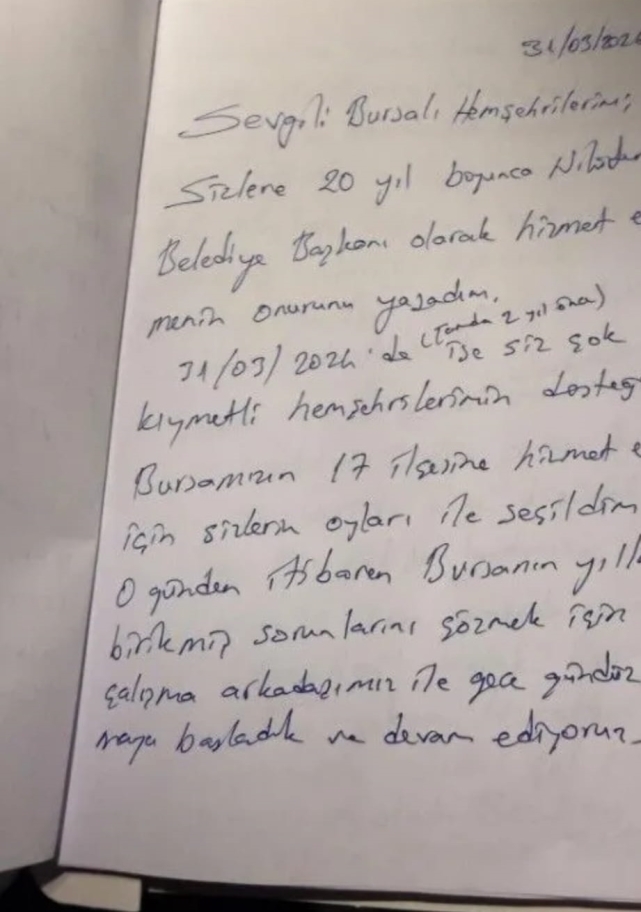 31/03/202
Sevgili Bursalı Hemşehrilerim;
Sizlere 20 yıl boyunca Nilüfer
Belediye Başkanı olarak hizmet e
menin onurunu yaşadım.
(Tamda 2 yıl önce)
31/03/2024'de ise siz çok
kıymetli hemşehrilerimin desteğ
Bursamızın 17 ilçesine hizmet e
için sizlerin oyları ile seçildim
O günden itibaren Bursanın yıll
birikmiş sorunlarını çözmek için
çalışma arkadaşımız ile gece gündüz
maya başladık ve devam ediyoruz.